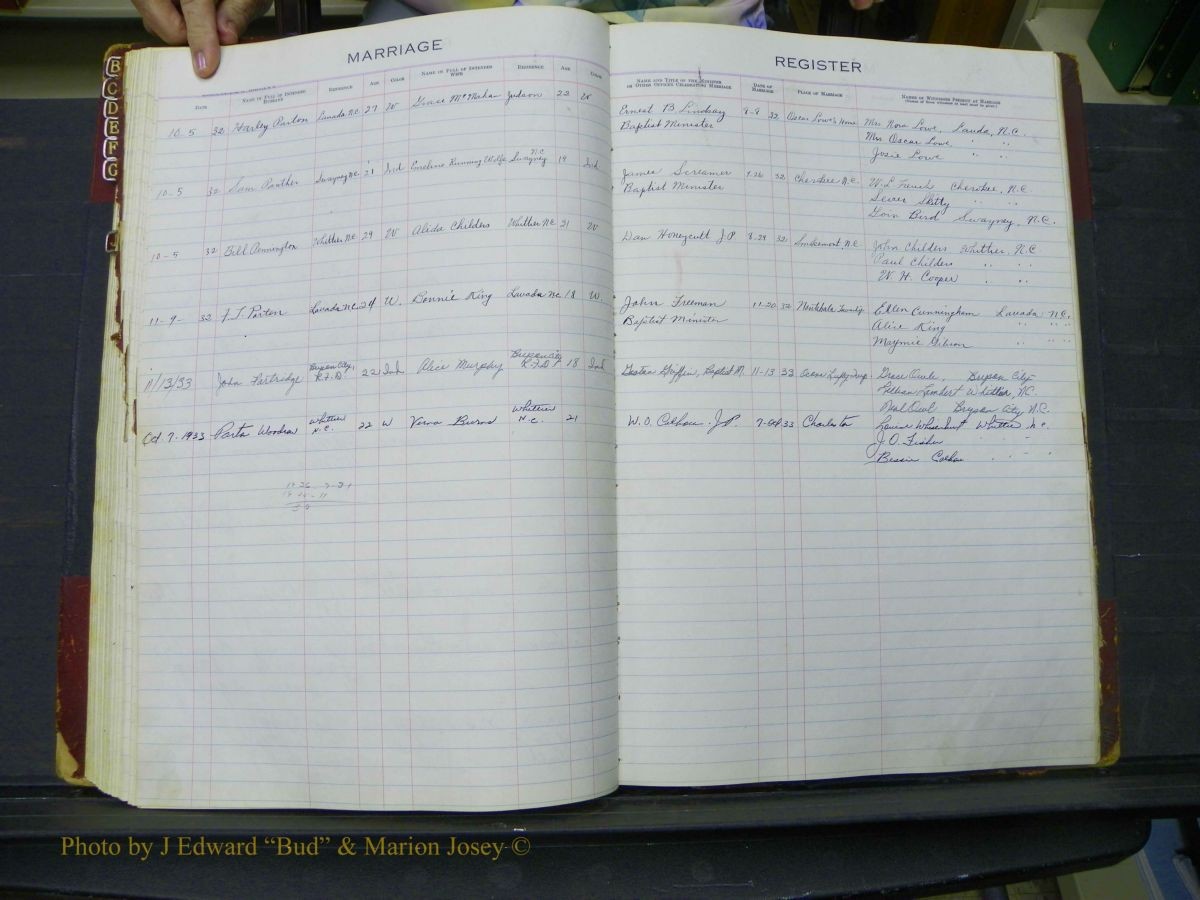 B
C
D
E
F
G
MARRIAGE
REGISTER
DATE NAME IN FULL OF INTENDED HUSBAND RESIDENCE AGE COLOR NAME IN FULL OF INTENDED WIFE RESIDENCE AGE COLOR
NAME AND TITLE OF THE MINISTER OR OTHER OFFICER CELEBRATING MARRIAGE DATE OF MARRIAGE PLACE OF MARRIAGE NAMES OF WITNESSES PRESENT AT MARRIAGE
10-5 32 Harley Parton Lauada N.C. 27 W Grace McMahan Judson 22 W
Ernest B. Lindsay 9-9 32 Oscar Lowe's Home Mrs Nora Lowe, Lauda, N.C.
Baptist Minister Mrs Oscar Lowe " "
Josie Lowe " "
10-5 32 Tom Panther Swayney N.C. 21 Ind Emeline Running Wolfe Swayney N.C. 19 Ind
James Screamer 9-26 32 Cherokee N.C. W.L. French Cherokee, N.C.
Baptist Minister Sewer Skitty " "
Goin Bird Swayney, N.C.
10-5 32 Bill Pennington Whittier N.C. 29 W Alida Childers Whittier N.C. 21 W
Dan Honeycutt J.P. 8-29 32 Smokemont, N.C. John Childers Whittier, N.C.
Paul Childers " "
W. H. Cooper " "
11-9- 32 F.T. Parton Lauada N.C. 24 W. Bonnie King Lauada N.C. 18 W.
John Freeman 11-20 32 Township Ellen Cunningham Lauada N.C.
Baptist Minister Alice King " "
Maymie Gibson " "
11/13/33 John Partridge Bryson City, R.F.D. 22 Ind Alice Murphy Bryson City R.F.D. 18 Ind
Griffin, Baptist M. 11-13 33 Twp. Grace Owle, Bryson City
Lillian Lambert Whittier, N.C.
Neal Owl Bryson City N.C.
Oct. 7-1933 Parton Woodrow Whittier N.C. 22 W Verna Burns Whittier N.C. 21
W. O. Calhoun J.P. 7-Oct 33 Charleston Louise Whisenhunt Whittier N.C.
J.O. Fisher " "
Bessie Calhoun " "
Photo by J Edward “Bud” & Marion Josey ©